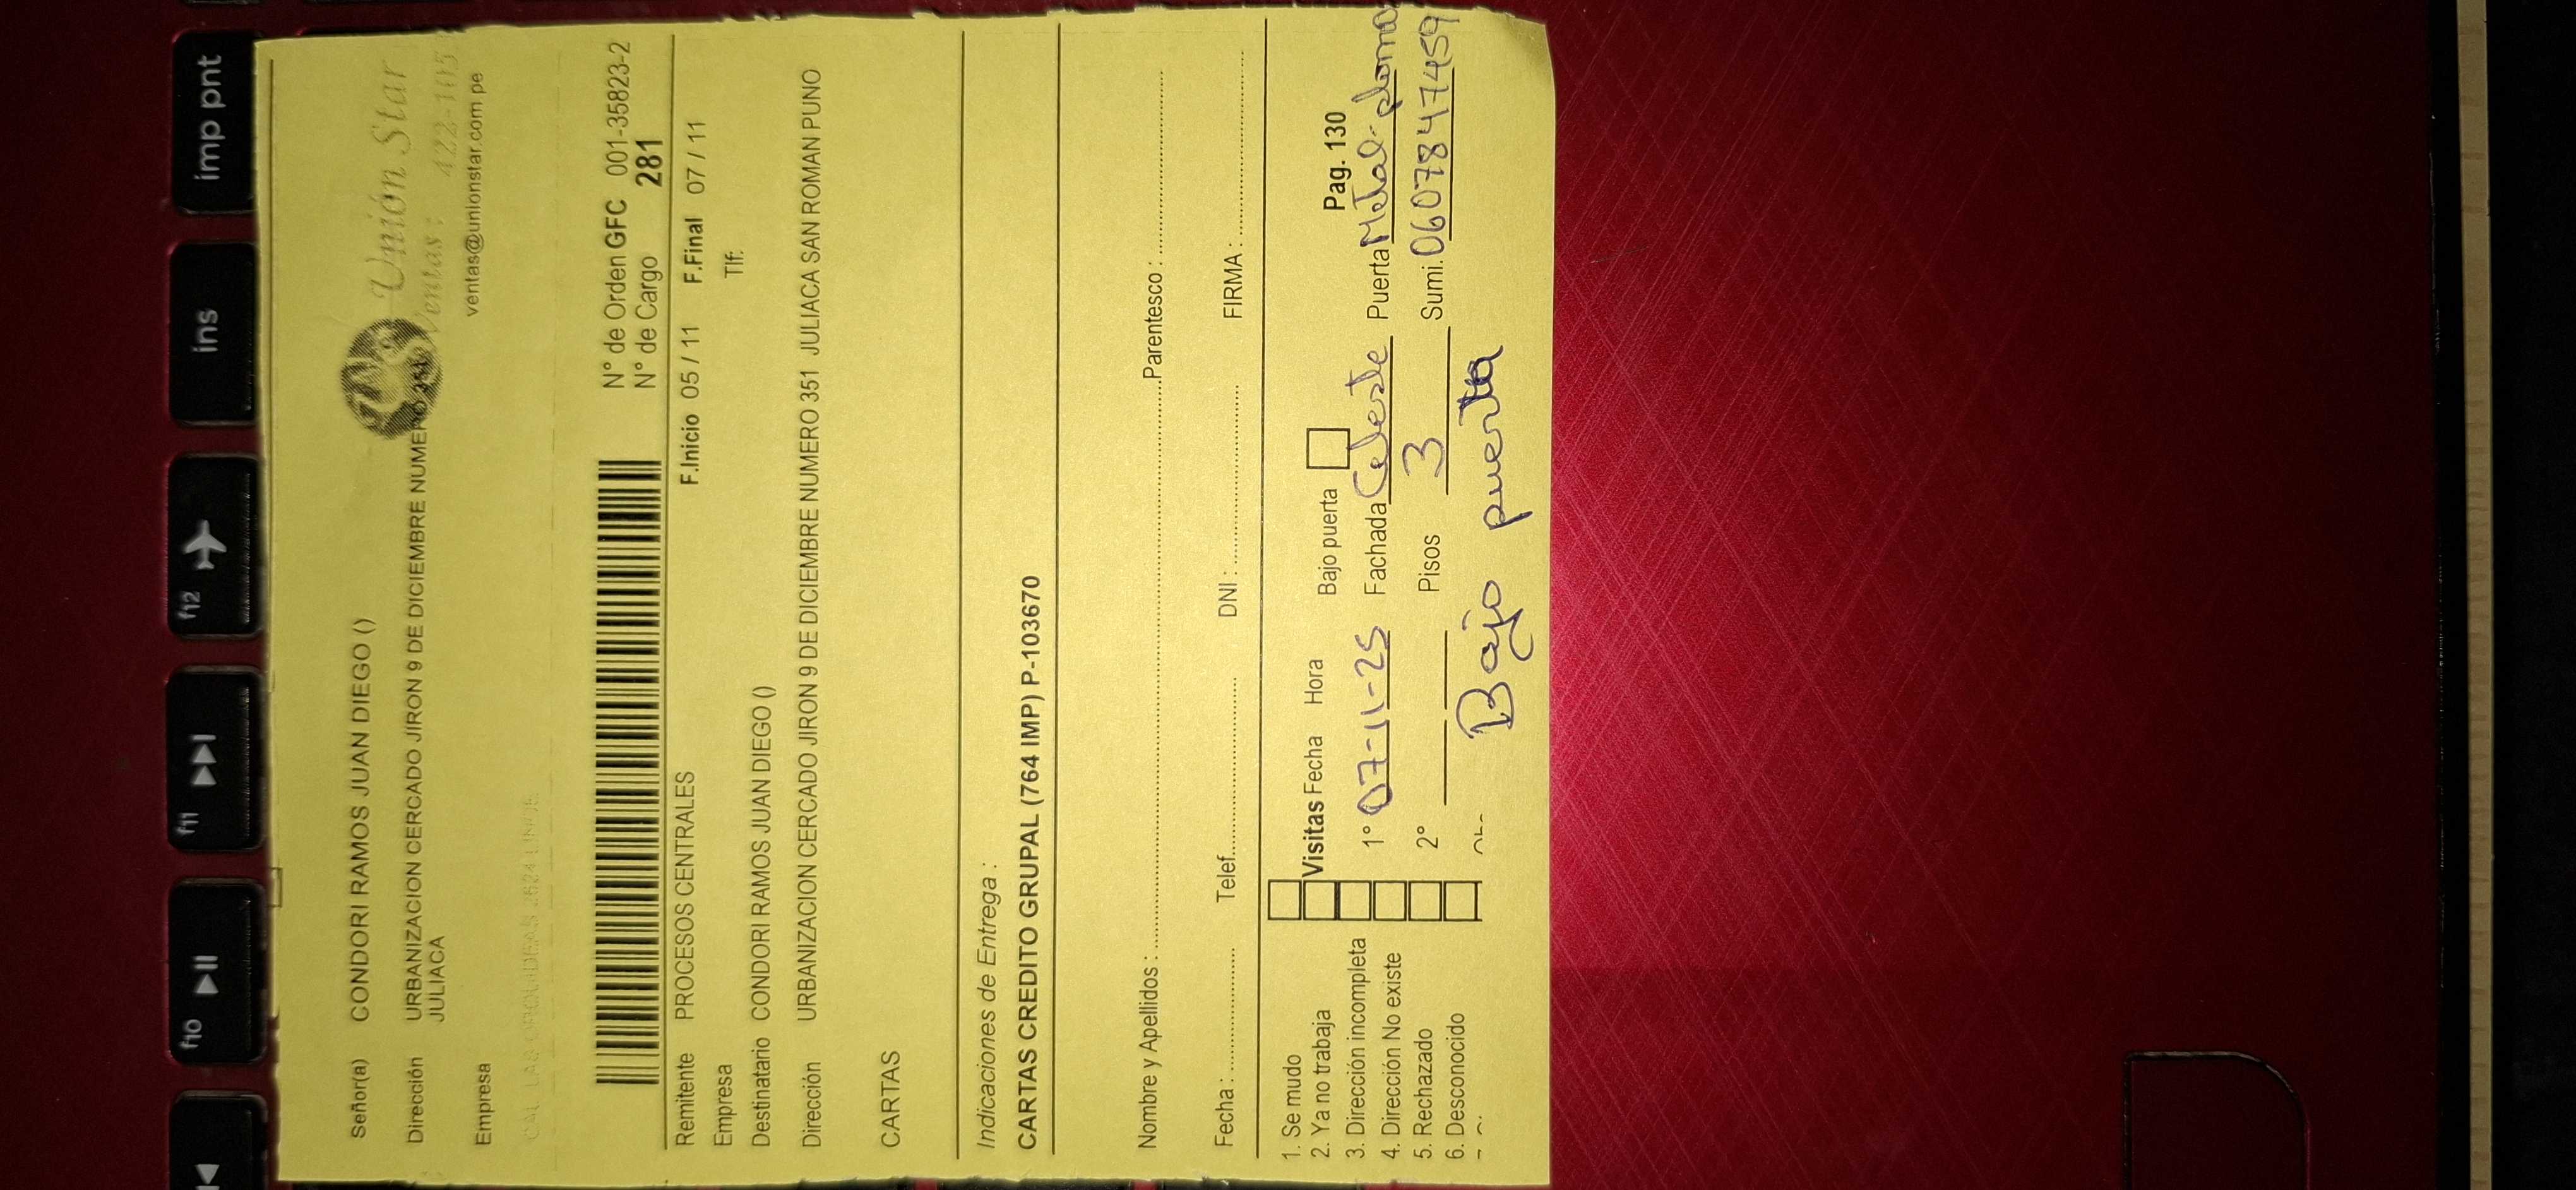 Unión Star
Ventas : 422-105
ventas@unionstar.com pe
Señor(a) CONDORI RAMOS JUAN DIEGO ()
Dirección URBANIZACION CERCADO JIRON 9 DE DICIEMBRE NUMERO 351
JULIACA
Empresa
CAL. LAS ORQUIDEAS 2624 LINCE
N° de Orden GFC 001-35823-2
N° de Cargo 281
Remitente PROCESOS CENTRALES F.Inicio 05 / 11 F.Final 07 / 11
Empresa Tlf:
Destinatario CONDORI RAMOS JUAN DIEGO ()
Dirección URBANIZACION CERCADO JIRON 9 DE DICIEMBRE NUMERO 351 JULIACA SAN ROMAN PUNO
CARTAS
Indicaciones de Entrega :
CARTAS CREDITO GRUPAL (764 IMP) P-103670
Nombre y Apellidos : Parentesco :
Fecha : Telef. DNI : FIRMA :
1. Se mudo
2. Ya no trabaja
3. Dirección incompleta
4. Dirección No existe
5. Rechazado
6. Desconocido
Visitas Fecha Hora Bajo puerta Pag. 130
1° 07-11-25 Fachada Celeste Puerta Metal-plomo
2° Pisos 3 Sumi. 0607847459
Bajo puerta
f10
f11
f12
ins
imp pnt